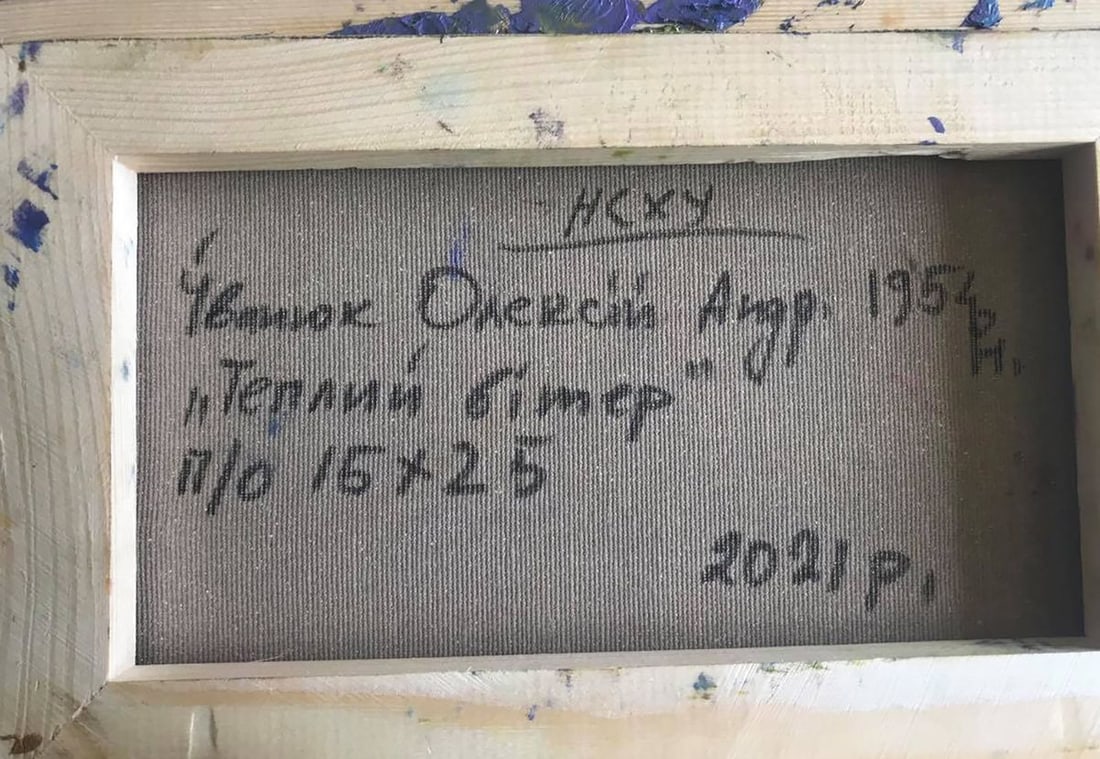 НСХУ
Іванюк Олексій Андр. 1954 р
н.
„Теплий вітер"
п/о 15х25
2021 р.